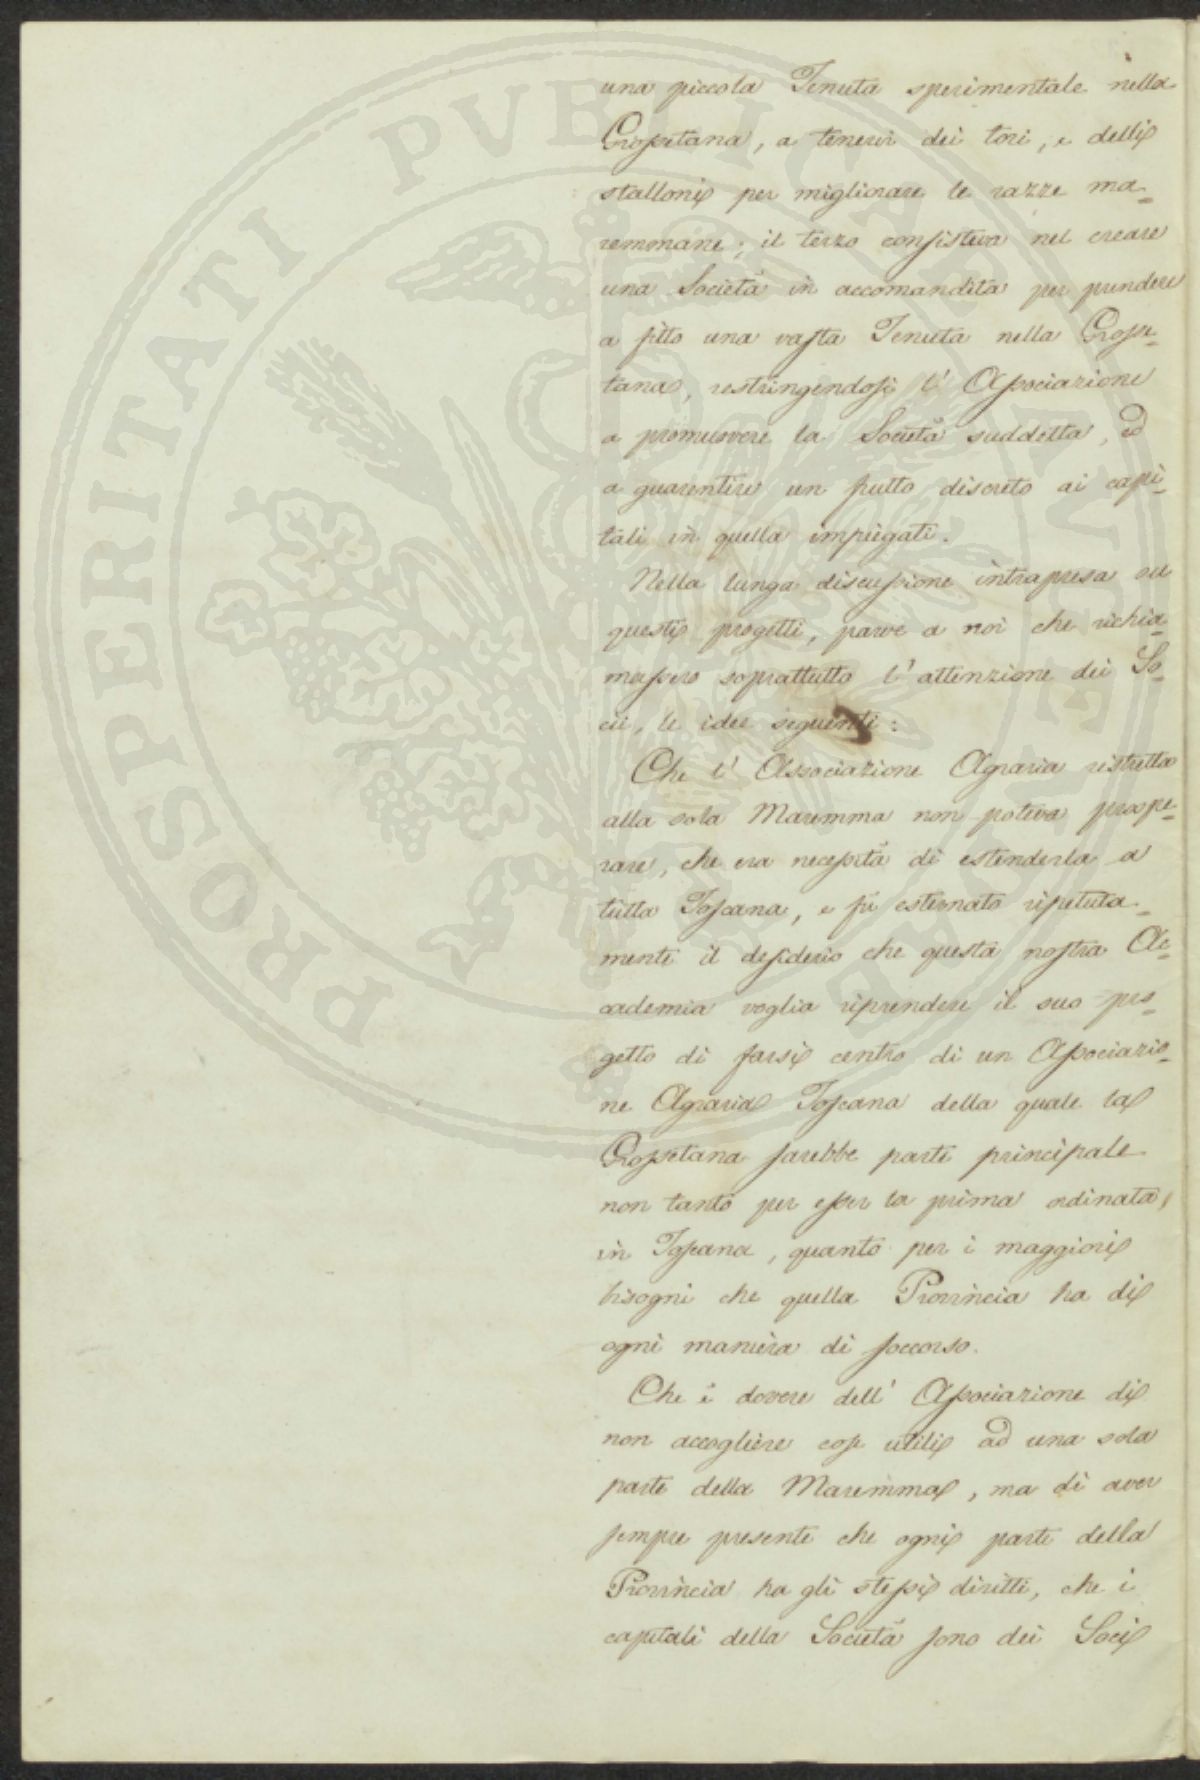 una piccola Tenuta sperimentale nella
Grossetana, a tenervi dei tori, e delli
stalloni per migliorare le razze ma=
remmane; il terzo consisteva nel creare
una Società in accomandita per prendere
a fitto una vasta Tenuta nella Grosse=
tana, restringendosi l' Associazione
a promuovere la Società suddetta, ed
a guarentire un frutto discreto ai capi=
tali in quella impiegati.
Nella lunga discussione intrapresa su
questi progetti, parve a noi che richia=
massero soprattutto l' attenzione dei So=
cii, le idee seguenti:
Che l' Associazione Agraria ristretta
alla sola Maremma non poteva prospe=
rare, che era necessità di estenderla a
tutta Toscana, e fù esternato ripetuta=
mente il desiderio che questa nostra Ac=
cademia voglia riprendere il suo pro=
getto di farsi centro di un Associazio=
ne Agraria Toscana della quale la
Grossetana sarebbe parte principale
non tanto per esser la prima ordinata,
in Toscana, quanto per i maggiori
bisogni che quella Provincia ha di
ogni maniera di soccorso.
Che è dovere dell' Associazione di
non accogliere cose utili ad una sola
parte della Maremma, ma di aver
sempre presente che ogni parte della
Provincia ha gli stessi diritti, che i
capitali della Società sono dei Soci
PROSPERITATI PVBLICAE AVGENDAE